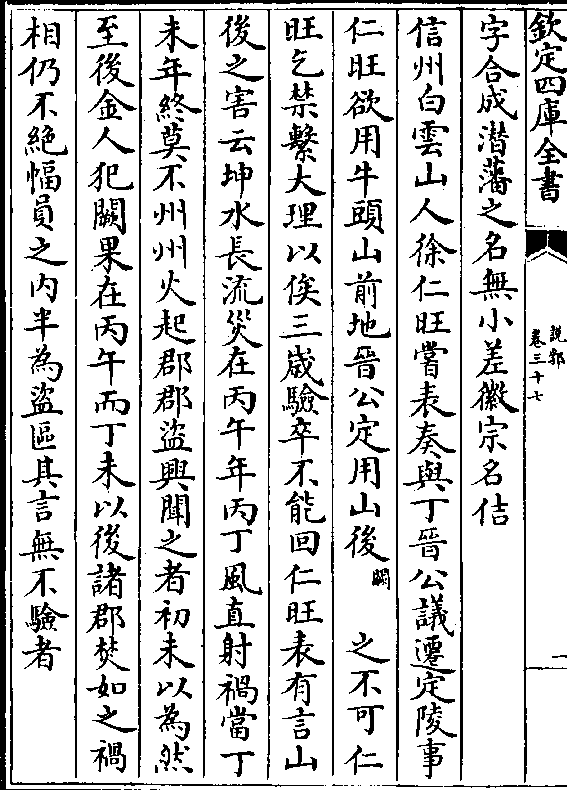 欽定四庫全書
說郛
卷三十七
一
字合成潜藩之名無小差徽宗名佶
信州白雲山人徐仁旺嘗表奏與丁晉公議遷定陵事
仁旺欲用牛頭山前地晉公定用山後闕之不可仁
旺乞禁繫大理以俟三歲驗卒不能回仁旺表有言山
後之害云坤水長流災在丙午年丙丁風直射禍當丁
未年終莫不州州火起郡郡盜興聞之者初未以為然
至後金人犯闕果在丙午而丁未以後諸郡焚如之禍
相仍不絕幅員之内半為盜區其言無不驗者